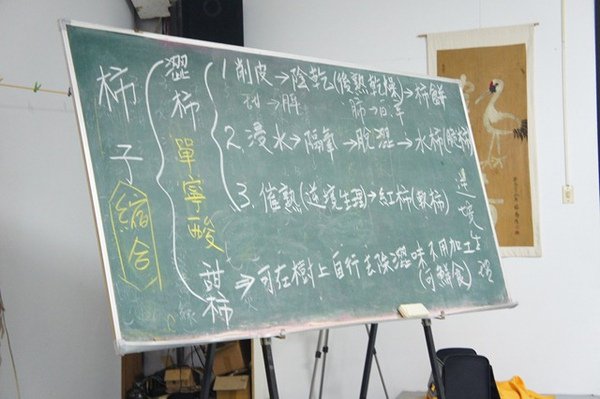 柿子
縮合
澀柿
單寧酸
1.削皮→陰乾(後熟乾燥)→柿餅
2.浸水→隔氧→脫澀→水柿(脆柿)
3.催熟(逆境生理)→紅柿(軟柿)
甜柿⇒可在樹上自行去除澀味不用加工
(可鮮食)
逆境